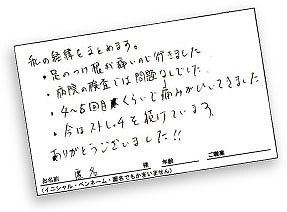 私の経緯をまとめます。
・足のつけ根が痛いので行きました
・病院の検査では問題なしでした。
・4〜5回目くらいで痛みがひいてきました
・今はストレッチを続けています。
ありがとうございました!!
お名前 匿名 様 年齢 ご職業
(イニシャル・ペンネーム・匿名でもかまいません)